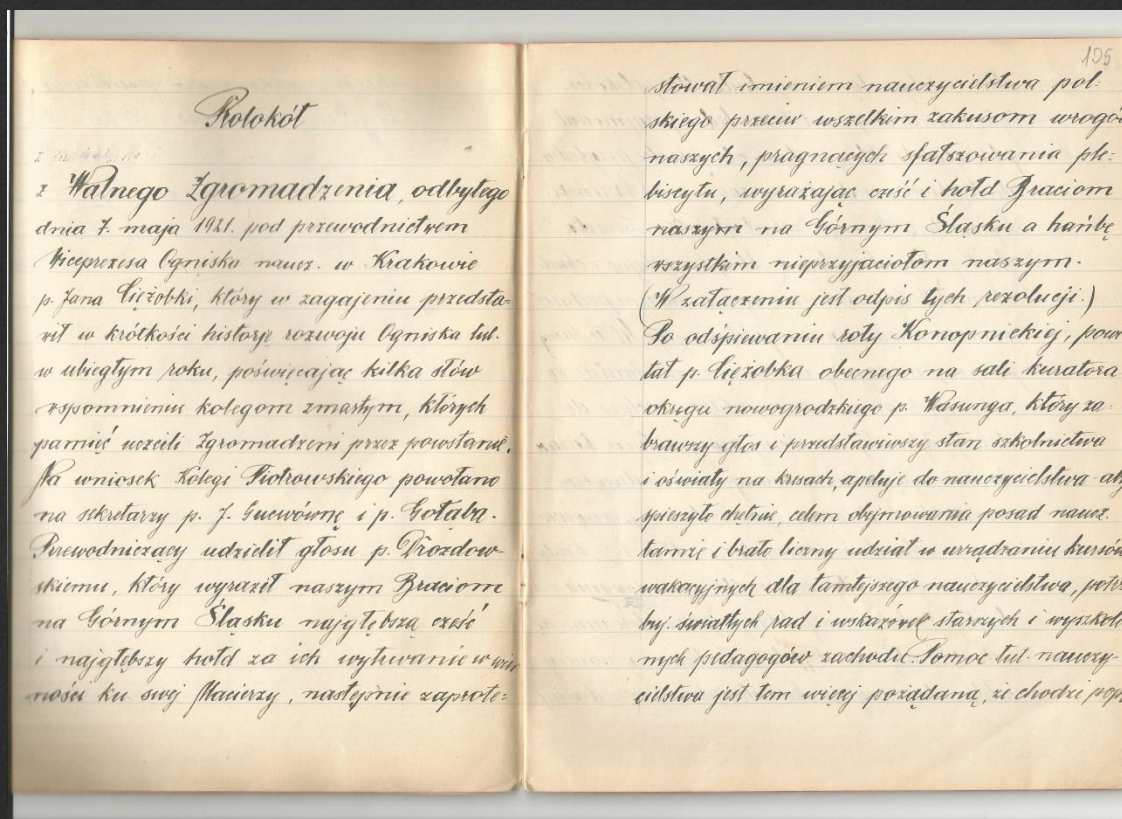 Protokół
z Walnego Zgromadzenia, odbytego
dnia 7. maja 1921. pod przewodnictwem
Viceprezesa Ogniska naucz. w Krakowie
p. Jana Ciężobki, który w zagajeniu przedsta-
wił w krótkości historję rozwoju Ogniska tut.
w ubiegłym roku, poświęcając kilka słów
wspomnieniu kolegom zmarłym, których
pamięć uczcili Zgromadzeni przez powstanie.
Na wniosek Kolegi Piotrowskiego powołano
na sekretarzy p. J. Gucwównę i p. Gołąba.
Przewodniczący udzielił głosu p. Drozdow-
skiemu, który wyraził naszym Braciom
na Górnym Śląsku najgłębszą cześć
i najgłębszy hołd za ich wytrwanie w
ności ku swej Macierzy, następnie zaprote-
125
stował imieniem nauczycielstwa pol-
skiego przeciw wszelkim zakusom wrogó
naszych, pragnących sfałszowania ple-
biscytu, wyrażając cześć i hołd Braciom
naszym na Górnym Śląsku a hańbę
wszystkim nieprzyjaciołom naszym.
(W załączeniu jest odpis tych rezolucji.)
Po odśpiewaniu roty Konopnickiej, powi
tał p. Ciężobka obecnego na sali kuratora
okręgu nowogrodzkiego p. Wasunga, który za-
brawszy głos i przedstawiwszy stan szkolnictwa
i oświaty na kresach, apeluje do nauczycielstwa aby
spieszyło chętnie, celem obejmowania posad naucz.
tamże i brało liczny udział w urządzaniu kursów
wakacyjnych dla tamtejszego nauczycielstwa, potrz
buj. światłych rad i wskazówek starszych i wyszkolo
nych pedagogów zachodu. Pomoc tut. nauczy-
cielstwa jest tem więcej pożądaną, że chodzi